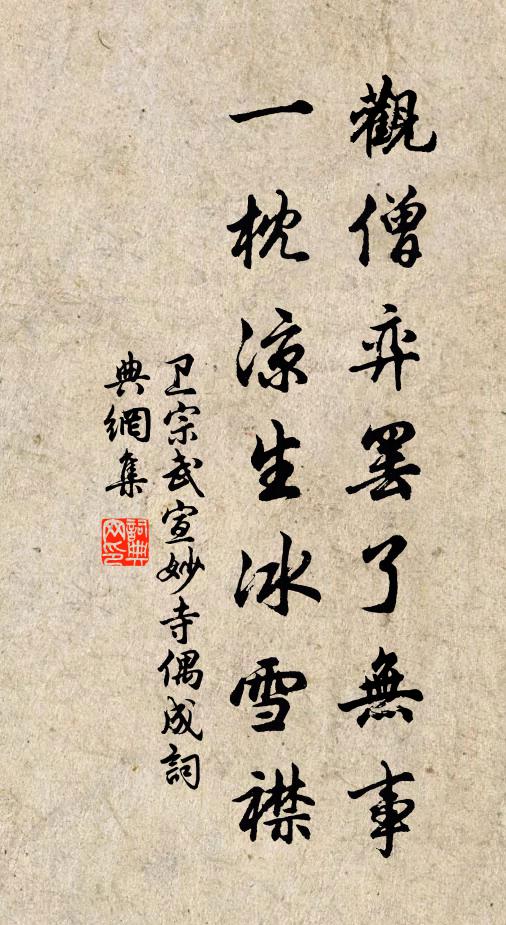 觀僧弈罷了無事
一枕凉生冰雪襟
卫宗武宣妙寺偶成詞
典網集
詞典网印